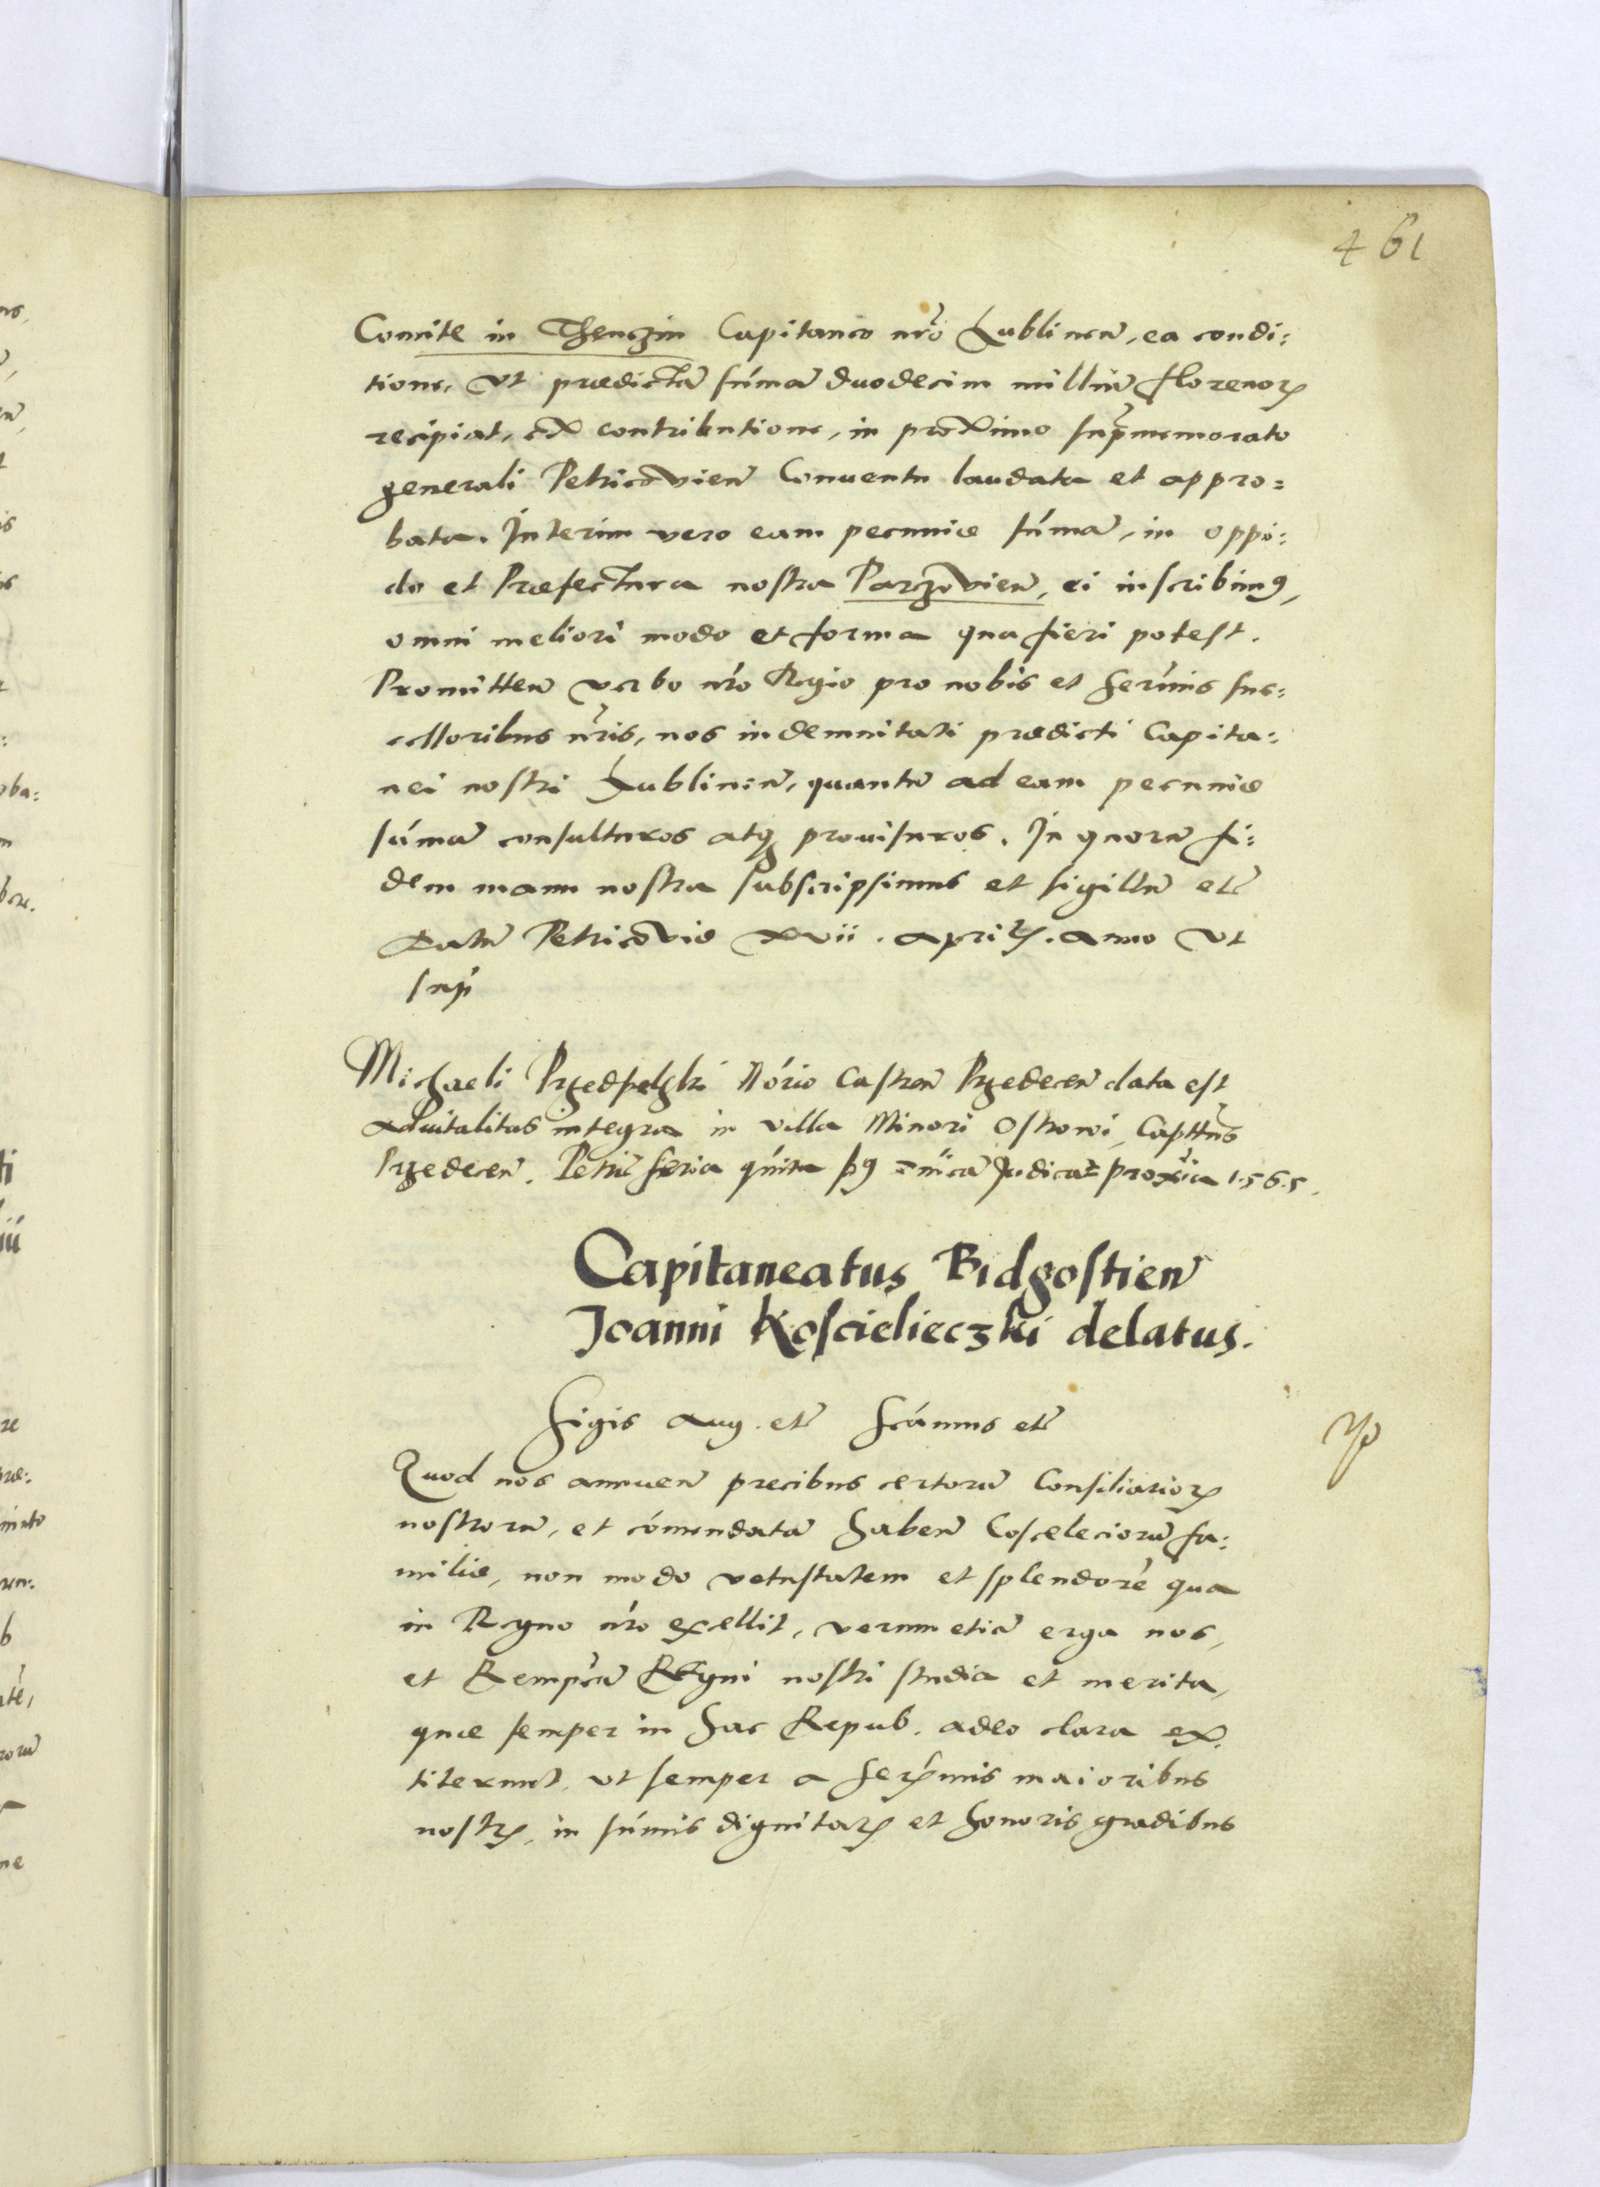 461
Comite in Thenczin Capitaneo nro Lublinen, ea condi:
tione, vt prædictã sum̃ã duodecim milliũ florenorꝝ
recipiat, ex contributione, in proximo supmemorato
generali Petricovien Conuentu laudata et appro:
bata. Interim vero eam pecuniæ sum̃ã, in oppi:
do et Præfectura nostra Parczovien, ei inscribimꝰ,
omni meliori modo et forma qua fieri potest.
Promitten verbo nro Regio pro nobis et sermis suc:
cessoribus nris, nos indemnitati prædicti Capita:
nei nostri Lublinen, quantũ ad eam pecuniæ
sum̃ã consulturos atqꝫ prouisuros. In quorũ fi:
dem manu nostra subscripsimus et sigillũ etc̃
Datũ Petricoviæ xvii. aprilꝭ. anno vt
sup̃
Michaeli Przedpelzki Nório Castren Przedecen data est
aduitalitas integra in villa Minori Ostrowi, Capttus
Przedecen. Petric̃ feria quinta pꝰ dnicã Judica proxima 1565.
Capitaneatus Bidgostien
Joanni Koscielieczki delatus.
Sigis Aug. etc̃ Scimus etc̃
Quod nos annuen precibus certorũ Consiliariorꝝ
nostrorũ, et com̃endatã haben Cosceleciorũ fa:
miliæ, non modo vetustatem et splendorẽ qua
in Regno nro excellit, verum etiã erga nos,
et Rempcã Regni nostri studia et merita,
quæ semper in hac Repub. adeo clara ex
titerunt, vt semper a serẽmis maioribus
nostrꝭ, in sum̃is dignitatꝭ et honoris gradibus